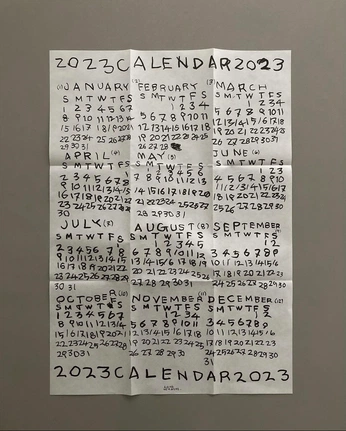 2023CALENDAR2023
(1) JANUARY
S M T W T F S
1 2 3 4 5 6 7
8 9 10 11 12 13 14
15 16 17 18 19 20 21
22 23 24 25 26 27 28
29 30 31
(2) FEBRUARY
S M T W T F S
1 2 3 4
5 6 7 8 9 10 11
12 13 14 15 16 17 18
19 20 21 22 23 24 25
26 27 28
(3) MARCH
S M T W T F S
1 2 3 4
5 6 7 8 9 10 11
12 13 14 15 16 17 18
19 20 21 22 23 24 25
26 27 28 29 30 31
APRIL (4)
S M T W T F S
1
2 3 4 5 6 7 8
9 10 11 12 13 14 15
16 17 18 19 20 21 22
23 24 25 26 27 28 29
30
MAY (5)
S M T W T F S
1 2 3 4 5 6
7 8 9 10 11 12 13
14 15 16 17 18 19 20
21 22 23 24 25 26 27
28 29 30 31
JUNE (6)
S M T W T F S
1 2 3
4 5 6 7 8 9 10
11 12 13 14 15 16 17
18 19 20 21 22 23 24
25 26 27 28 29 30
JULY (7)
S M T W T F S
1
2 3 4 5 6 7 8
9 10 11 12 13 14 15
16 17 18 19 20 21 22
23 24 25 26 27 28 29
30 31
AUGUST (8)
S M T W T F S
1 2 3 4 5
6 7 8 9 10 11 12
13 14 15 16 17 18 19
20 21 22 23 24 25 26
27 28 29 30 31
SEPTEMBER
S M T W T F S
1 2
3 4 5 6 7 8 9
10 11 12 13 14 15 16
17 18 19 20 21 22 23
24 25 26 27 28 29 30
OCTOBER (10)
S M T W T F S
1 2 3 4 5 6 7
8 9 10 11 12 13 14
15 16 17 18 19 20 21
22 23 24 25 26 27 28
29 30 31
NOVEMBER (11)
S M T W T F S
1 2 3 4
5 6 7 8 9 10 11
12 13 14 15 16 17 18
19 20 21 22 23 24 25
26 27 28 29 30
DECEMBER (12)
S M T W T F S
1 2
3 4 5 6 7 8 9
10 11 12 13 14 15 16
17 18 19 20 21 22 23
24 25 26 27 28 29 30
31
2023CALENDAR2023